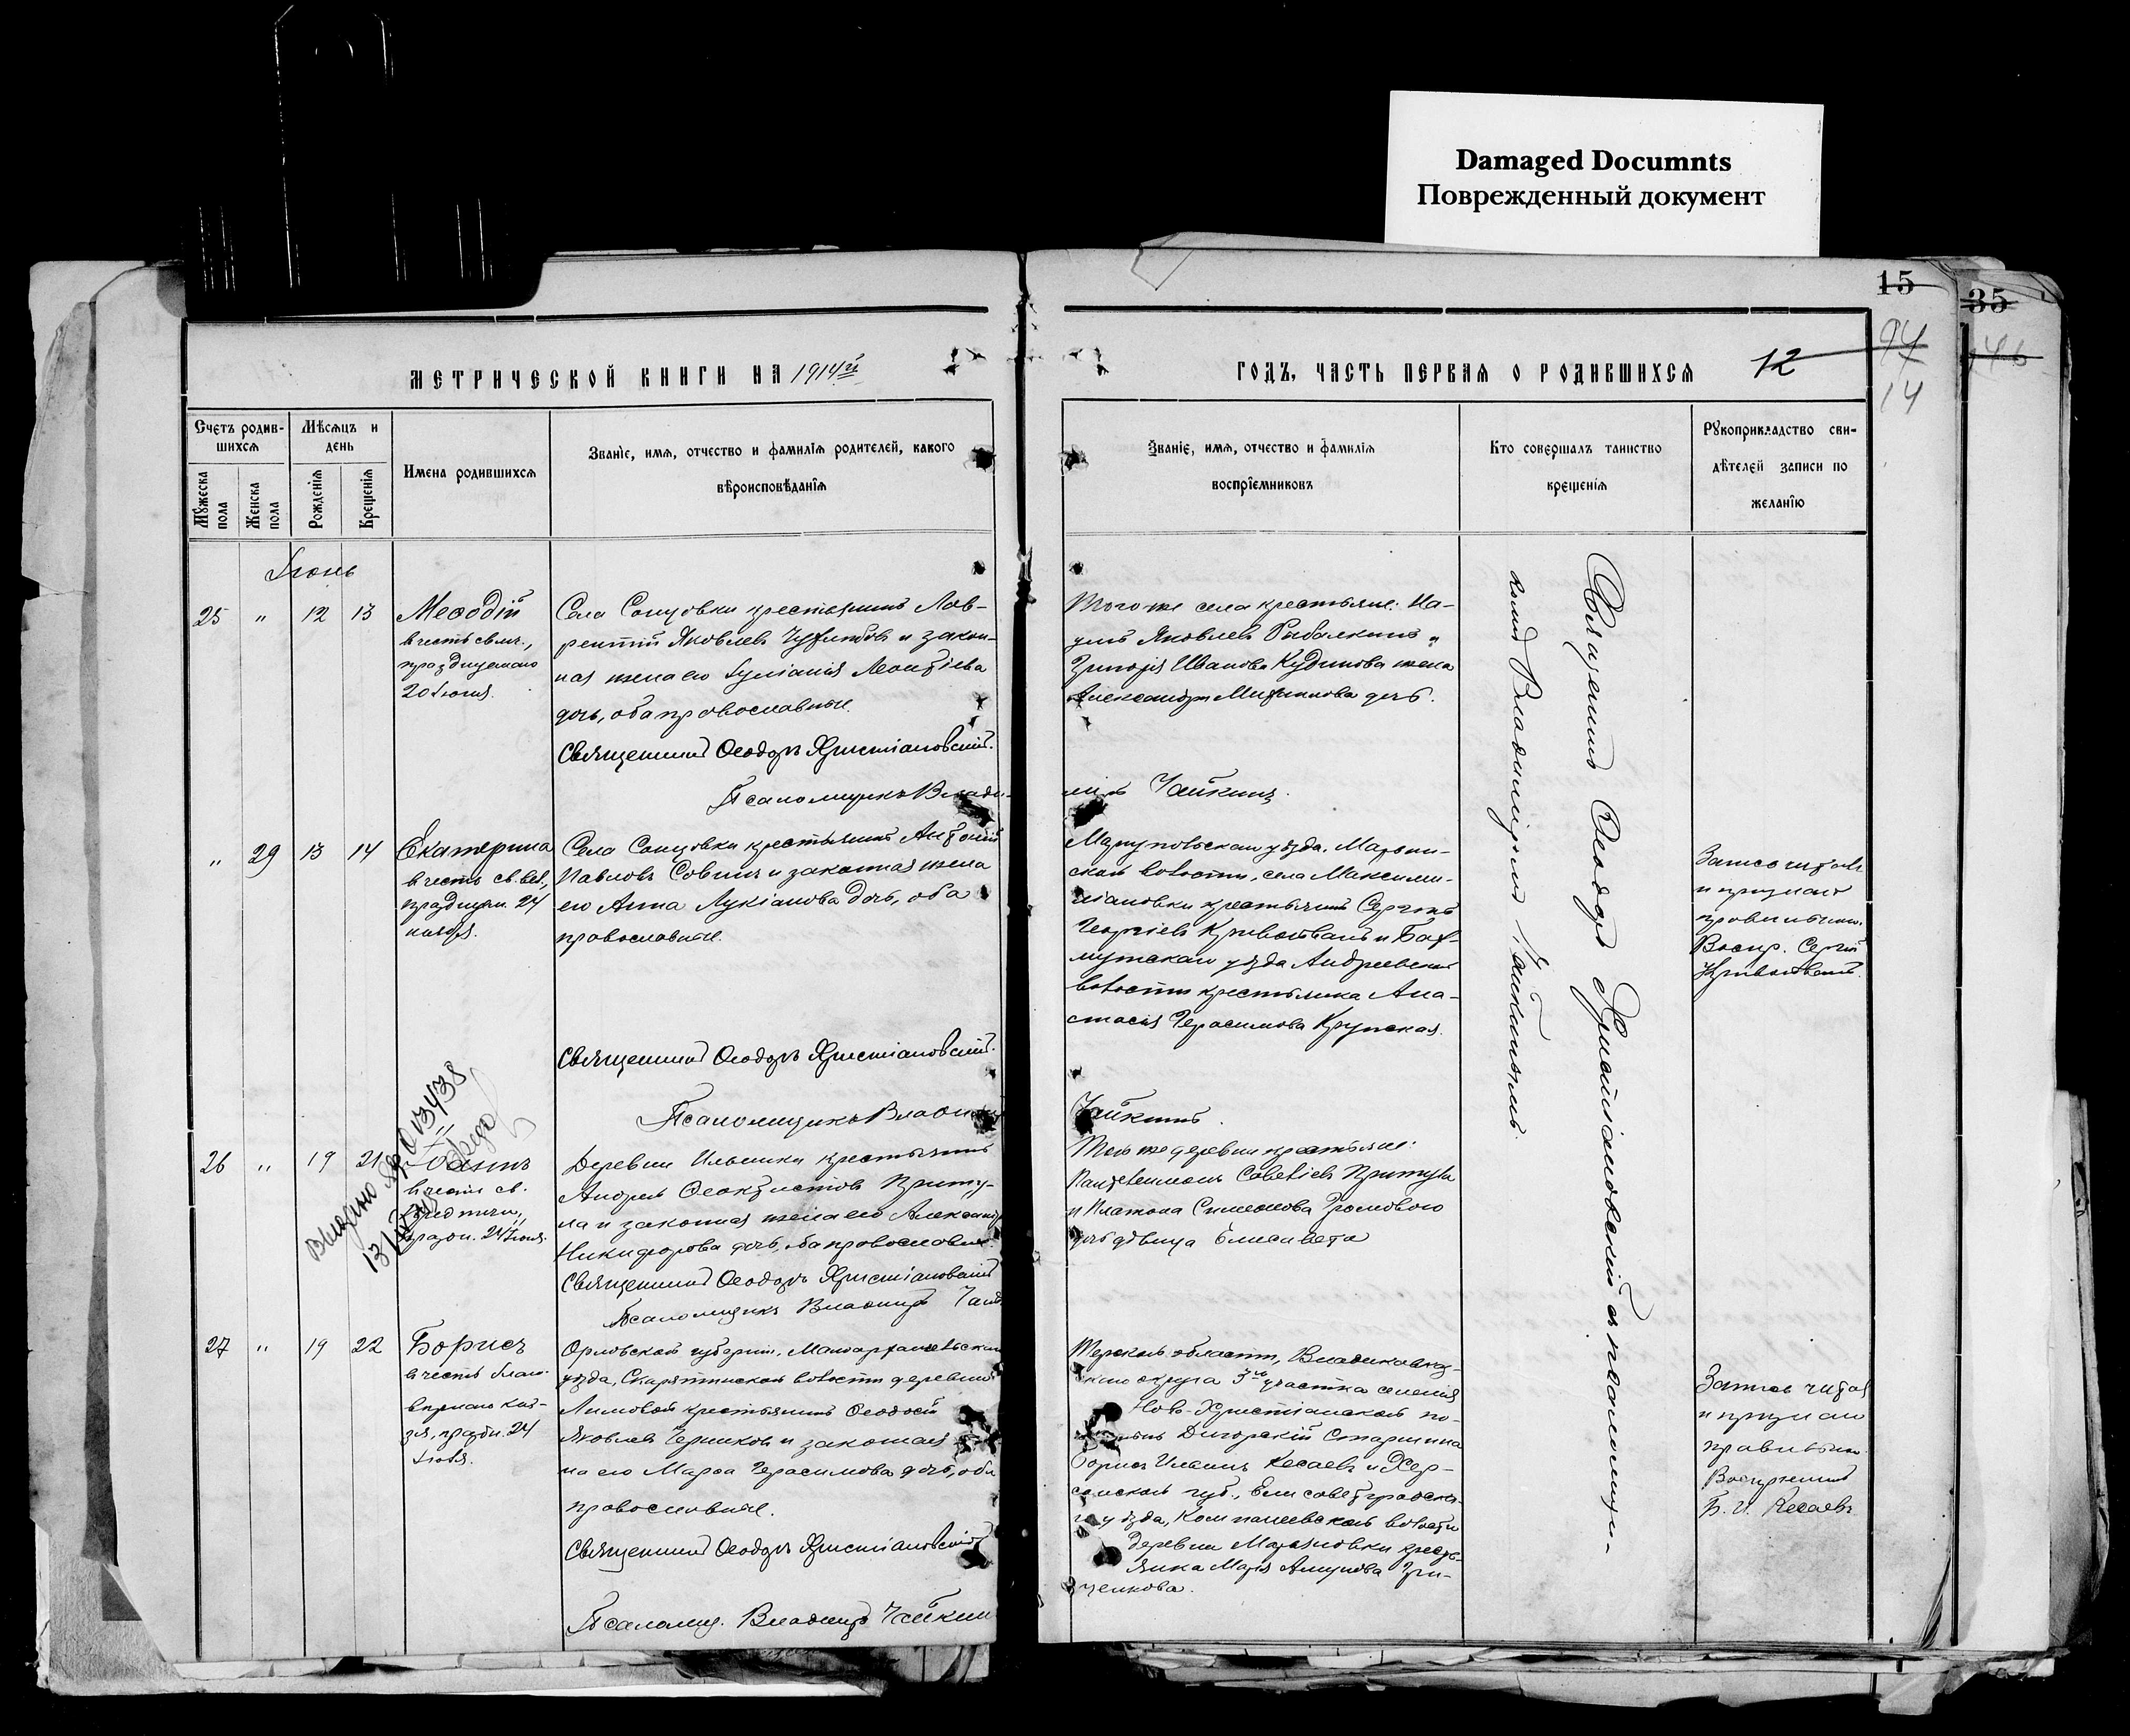 Damaged Documnts
Поврежденный документ
15
35
94
14
МЕТРИЧЕСКОЙ КНИГИ НА 1914й
ГОДЪ, ЧАСТЬ ПЕРВАЯ О РОДИВШИХСЯ
12
Счетъ родив-
шихся
Мужеска
пола
Женска
пола
Мѣсяцъ и
день
Рожденія
Крещенія
Имена родившихся
Званіе, имя, отчество и фамилія родителей, какого
вѣроисповѣданія
Званіе, имя, отчество и фамилія
воспріемниковъ
Кто совершалъ таинство
крещенія
Рукоприкладство сви-
дѣтелей записи по
желанію
Іюнь
25 " 12 13
Меѳодій
въ честь свмч.,
празднуемаго
20 Іюня.
Села Сонцовки крестьянинъ Лав-
рентій Яковлевъ и закон-
ная жена его Іуліанія Леонтіева
дочь, оба православные.
Священникъ Ѳеодоръ Християновскій.
Псаломщикъ Влади-
Того же села крестьяне: На-
умъ Яковлевъ Рыбалкинъ и
Григорія Иванова Кудинова жена
Александра дочь.
міръ Чайкинъ.
" 29 13 14
Екатерина
въ честь св. вел.,
праздн. 24
ноября.
Села Сонцовки крестьянинъ Антоній
Павловъ Совинъ и законная жена
его Анна Лукіанова дочь, оба
православные.
Священникъ Ѳеодоръ Християновскій.
Псаломщикъ Владиміръ
Маріупольскаго уѣзда, Марьин-
ской волости, села Максими-
ліановки крестьянинъ Сергій
Георгіевъ и Бах-
мутскаго уѣзда Андреевской
волости крестьянка Ана-
стасія Герасимова Крупская.
Чайкинъ.
Запись читалъ
и признаю
правильною.
Воспр. Сергій
26 " 19 21
Выдано
13438
Іоаннъ
въ честь св.
Предтечи,
праздн. 24 Іюня.
Деревни Ильинки крестьянинъ
Андрей Ѳеоктистовъ Приту-
ла и законная жена его Александра
Никифорова дочь, оба православные.
Священникъ Ѳеодоръ Християновскій
Псаломщикъ Владиміръ
Той же деревни крестьяне:
Пантелеимонъ Савеліевъ Притула
и Платона Симеонова Громового
дочь дѣвица Елисавета
27 " 19 22
Борисъ
въ честь благо-
вѣрнаго кня-
зя, праздн. 24
Іюля.
Орловской губерніи, Малоархангельскаго
уѣзда, Скарятинской волости деревни
Лимовой крестьянинъ Ѳеодосій
Яковлевъ Черниковъ и законная
на его Марѳа Герасимова дочь, оба
православные.
Священникъ Ѳеодоръ Християновскій
Псаломщ. Владиміръ Чайкин
Терской области, Владикавказ-
скаго округа 3го участка селенія
Ново-Христіанскаго
Дигорскій Старшина
Борисъ Кесаевъ и Хер-
сонской губ., Елисаветградска-
го уѣзда, Компанеевской волости
деревни Марьяновки кресть-
янка Марія Гри-
ченкова.
Запись читалъ
и признаю
правильною.
Воспріемникъ
Б. И. Кесаевъ
Священникъ Ѳеодоръ Християновскій съ псаломщи-
комъ Владиміромъ Чайкинымъ.